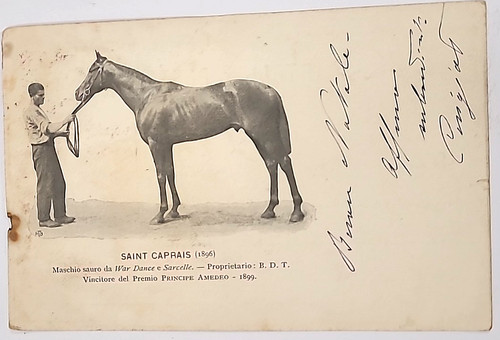 SAINT CAPRAIS (1896)
Maschio sauro da War Dance e Sarcelle. — Proprietario: B. D. T.
Vincitore del Premio PRINCIPE AMEDEO - 1899.
Buon Natale-